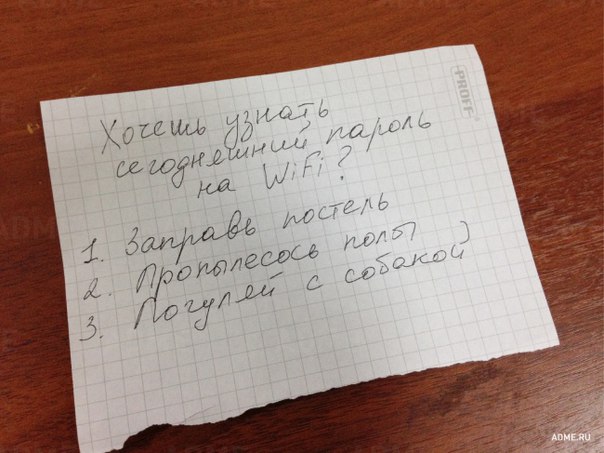 PROFF
Хочешь узнать
сегодняшний пароль
на WiFi?
1. Заправь постель
2. Пропылесось полы
3. Погуляй с собакой )
ADME.RU